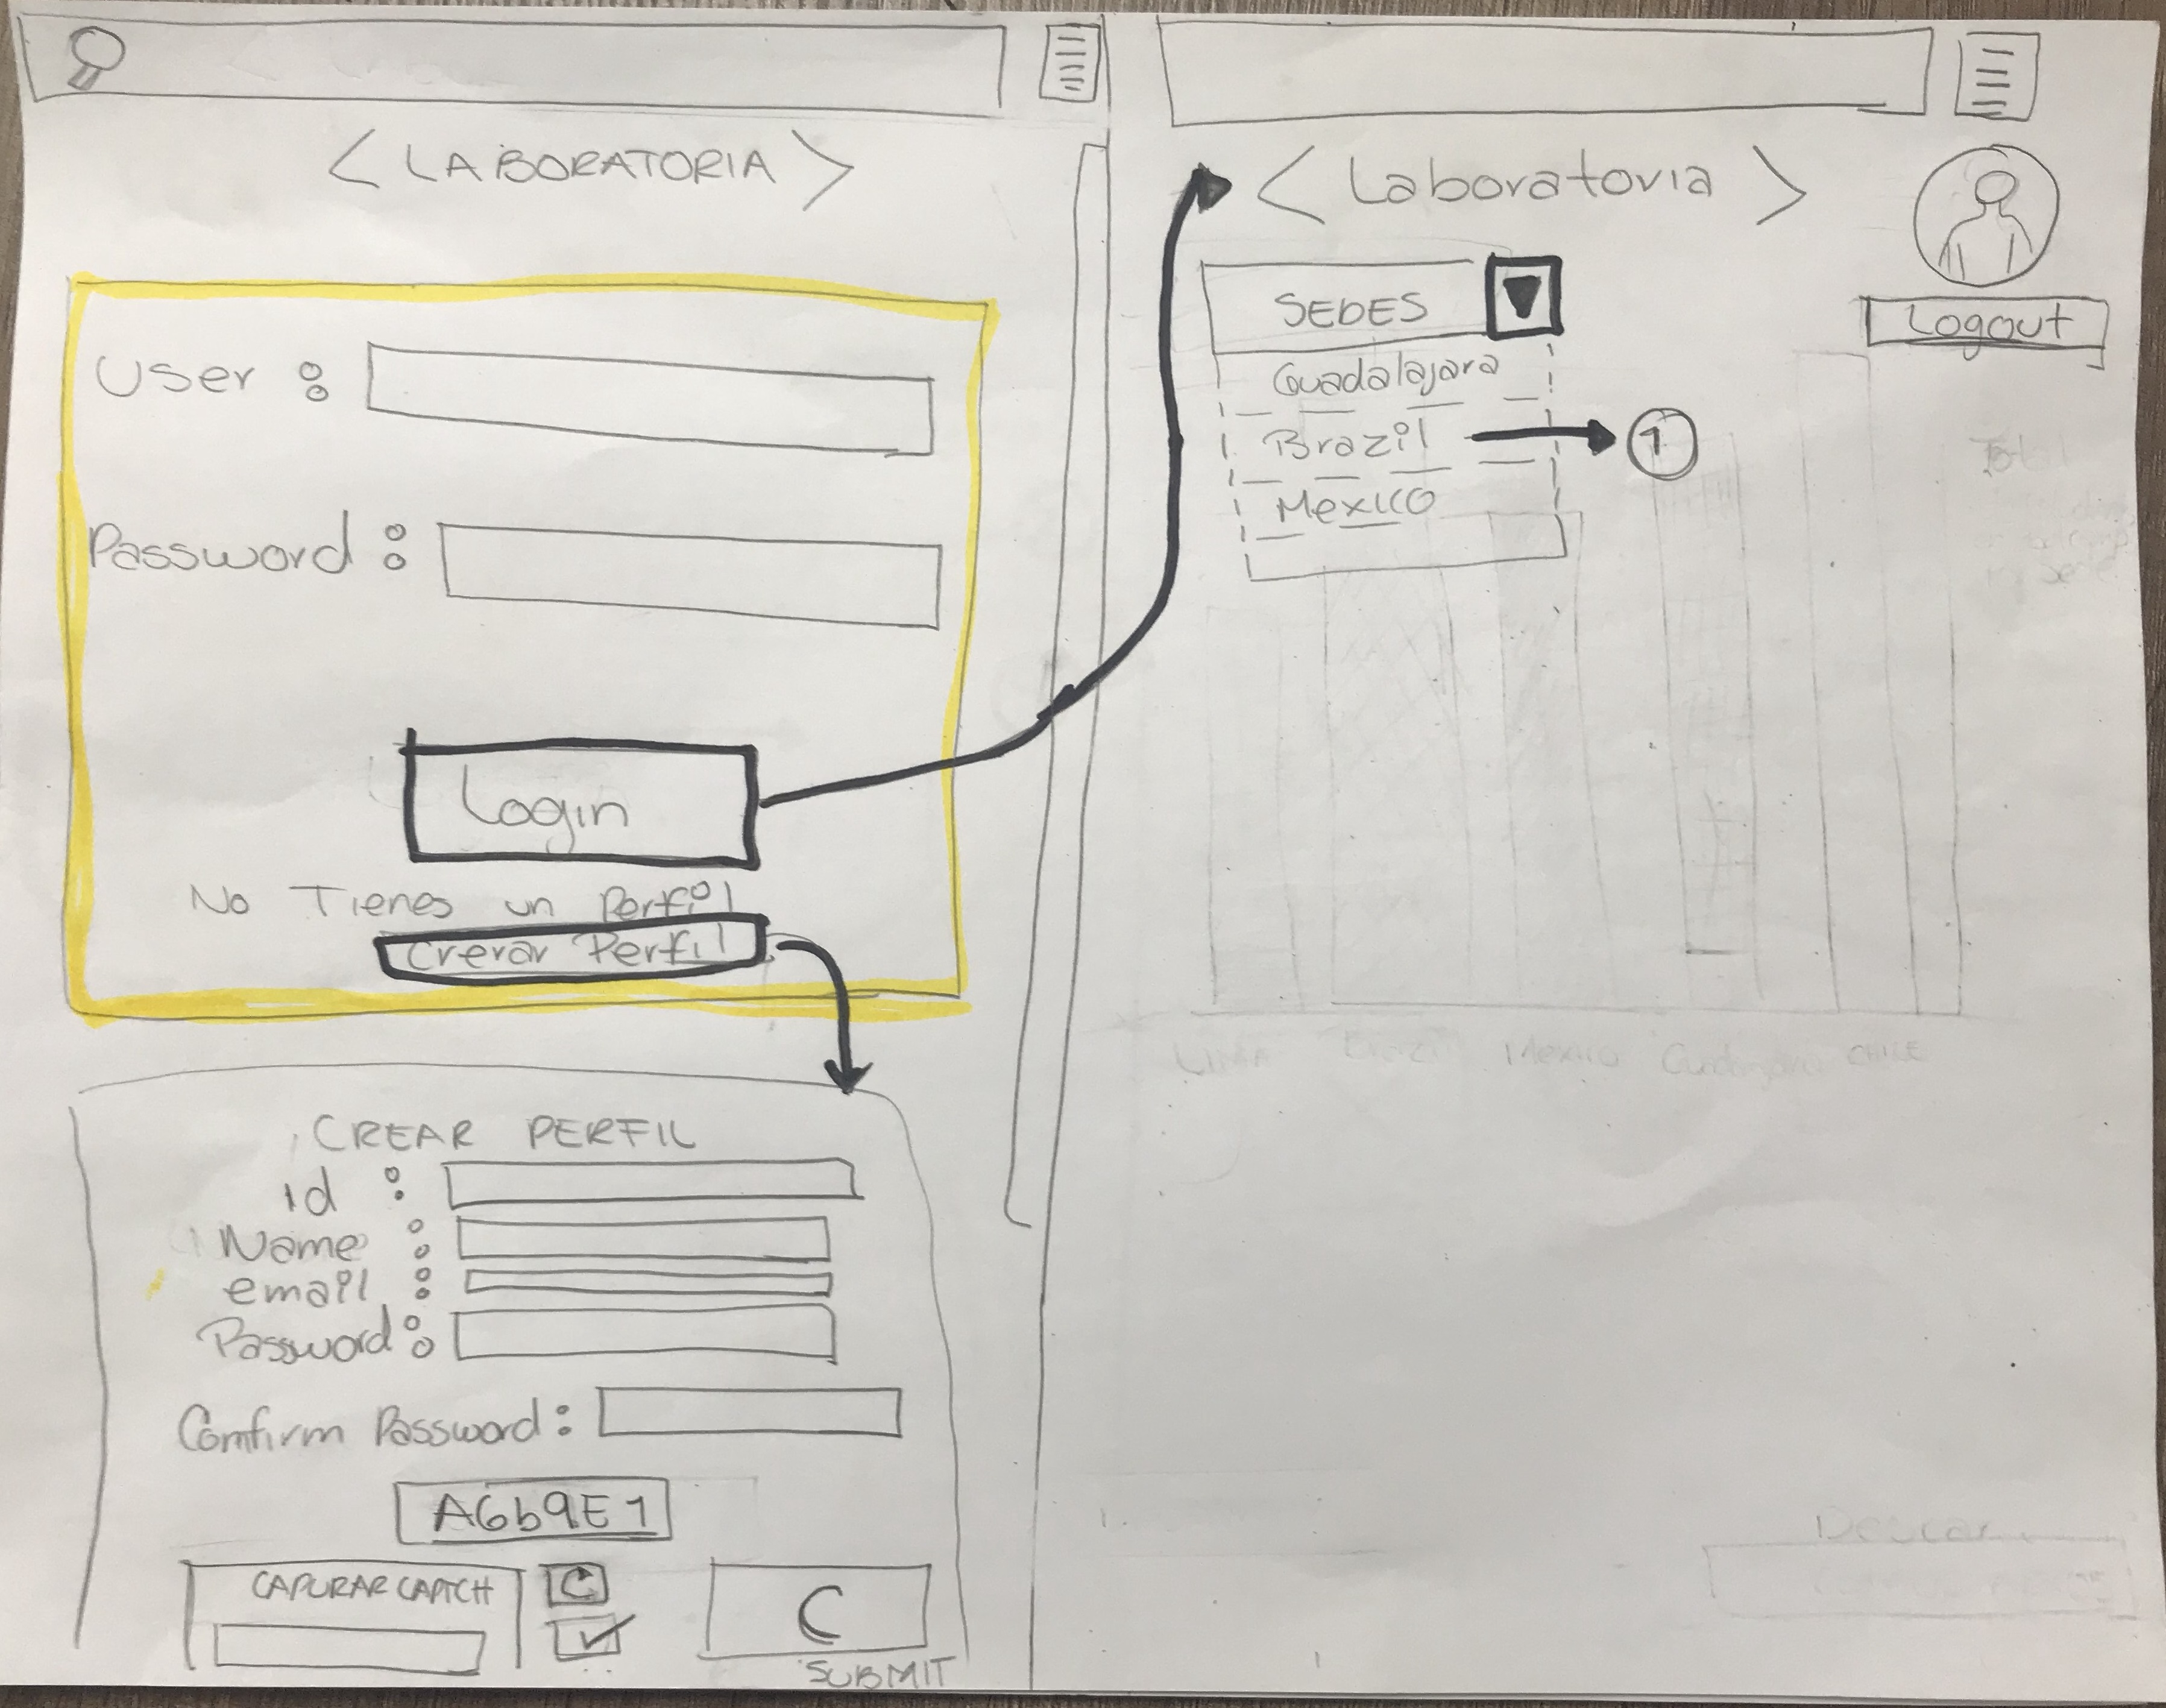 < LABORATORIA >
User :
Password :
Login
No Tienes un Perfil
Crerar Perfil
CREAR PERFIL
id :
Name :
email :
Password :
Comfirm Password :
A6b9E1
CAPURAR CAPTCH
C
SUBMIT
< Laboratoria >
SEDES
Logout
Guadalajara
Brazil
1
Mexico
LIMA Brazil Mexico Guadalajara CHILE